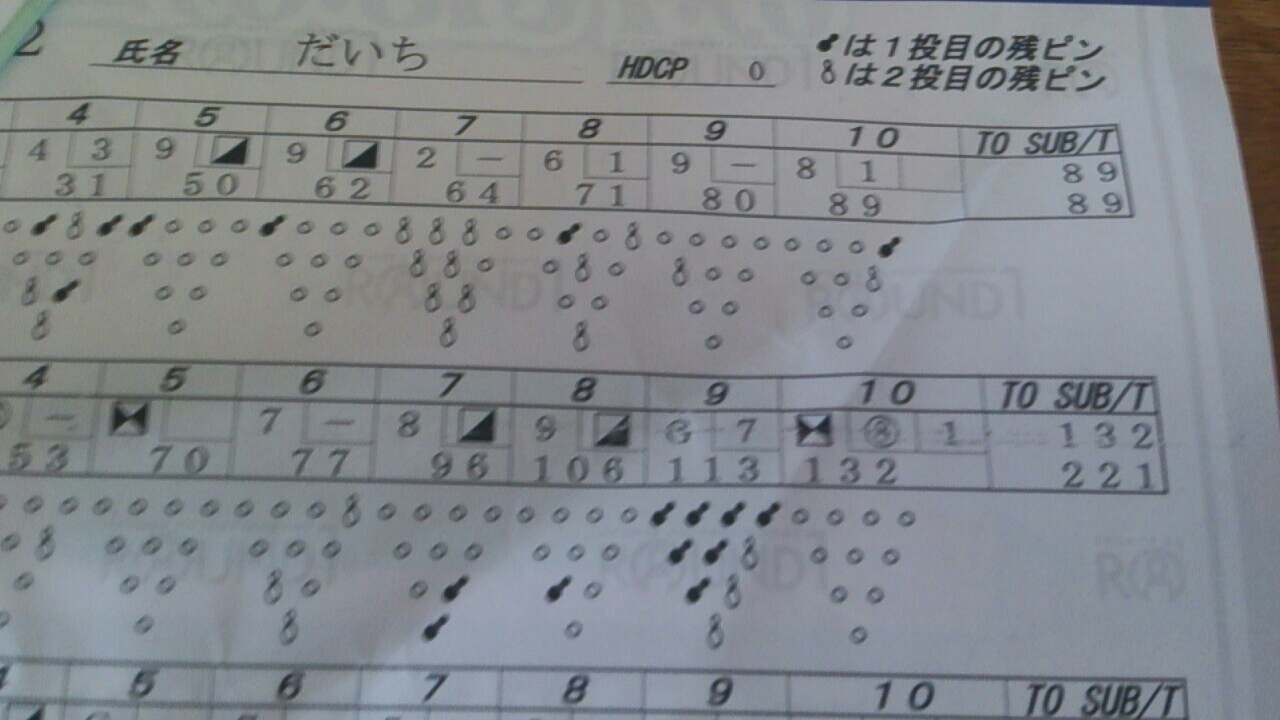 2 氏名 だいち HDCP 0
は1投目の残ピン
は2投目の残ピン
4 5 6 7 8 9 10 TO SUB/T
4 3 9 9 2 - 6 1 9 - 8 1 89
31 50 62 64 71 80 89 89
4 5 6 7 8 9 10 TO SUB/T
- 7 - 8 9 7 8 1 132
53 70 77 96 106 113 132 221
5 6 7 8 9 10 TO SUB/T